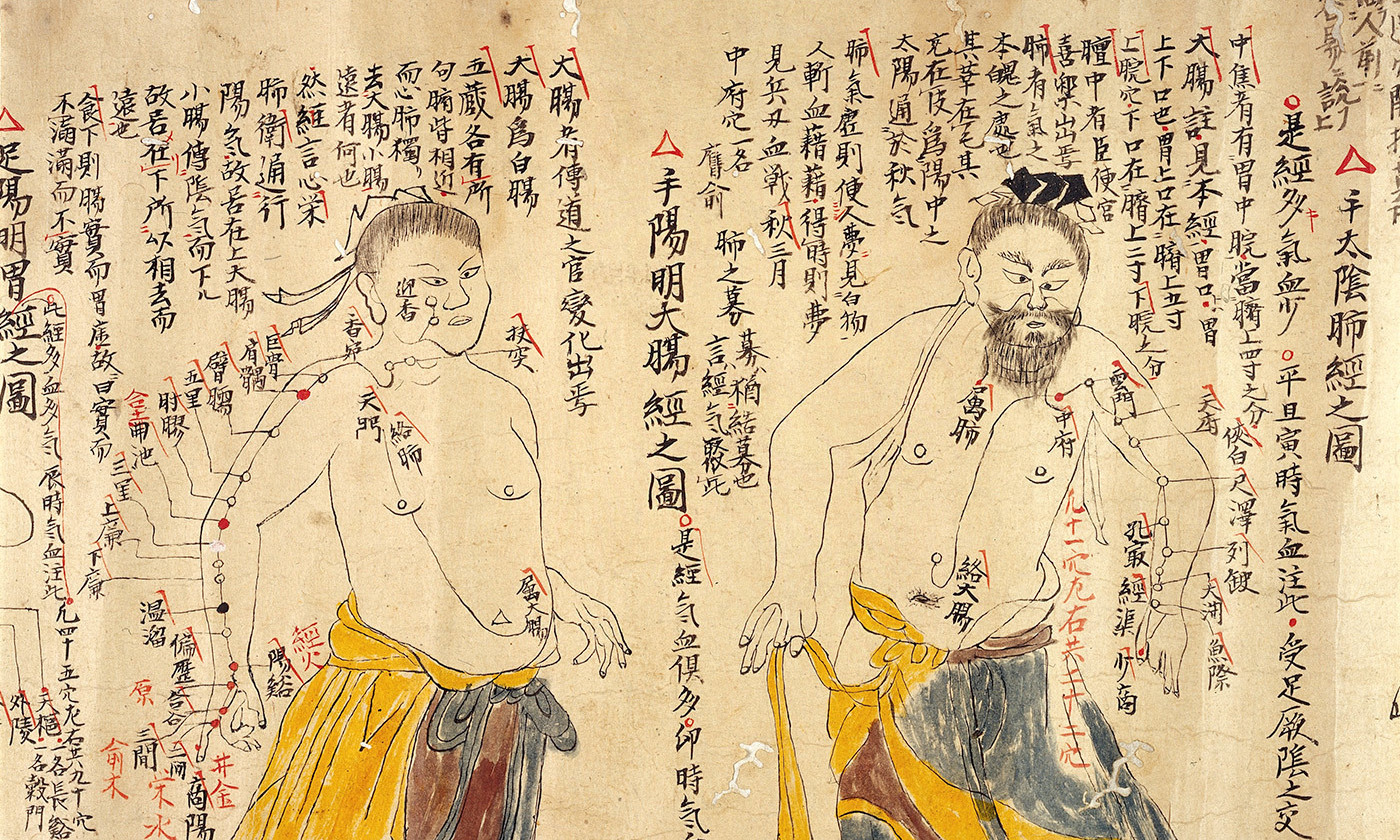 手太陰肺經之圖
是經多氣血少
平旦寅時氣血注此
受足厥陰之交
中焦者有胃中脘當臍上四寸之分
大腸註見本經胃口胃
上下口也胃上口在臍上五寸
上脘穴下口在臍上二寸下脘之分
膻中者臣使官
喜樂出焉
肺者氣之
本魄之處也
其華在毛其
充在皮為陽中之
太陽通於秋氣
肺氣虛則使人夢見白物
人斬血藉藉得時則夢
見兵刃血戰秋三月
中府穴一名
膺俞
肺之募
募猶結募也
言經氣聚此
雲門
中府
天府
俠白
尺澤
孔最
列缺
經渠
魚際
少商
屬肺
絡大腸
凡十一穴左右共二十二穴
手陽明大腸經之圖
是經氣血俱多
卯時氣
大腸者傳道之官變化出焉
大腸為白腸
五蔵各有所
句腑皆相近
而心肺獨
去大腸小腸
遠者何也
然經言心栄
肺衛通行
陽氣故居在上大腸
小腸傳陰氣而下
故居在下所以相去而
遠也
扶突
迎香
天門
絡肺
屬大腸
巨骨
肩髃
臂臑
五里
肘髎
曲池
三里
上廉
下廉
温溜
偏歷
陽谿
經火
合谷
原
三間
二間
商陽
井金
俞木
食下則腸實而胃虛故曰實而
不滿滿而不實
足陽明胃經之圖
此經多血多氣辰時氣血注此
凡四十五穴左右共九十穴
天樞一名長谿
一名穀門
外陵